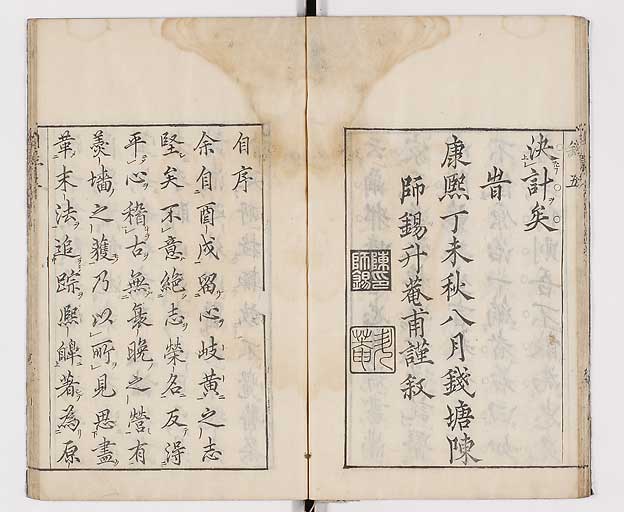 決計矣
旹
康熙丁未秋八月錢塘陳
師錫升菴甫謹叙
陳印
師錫
升菴
自序
余自酉戌留心岐黄之志
堅矣不意絶志榮名反淂
平心稽古無裊晚之營有
羮墻之蒦乃以所見思盡
革末法追踪熙皡著為原